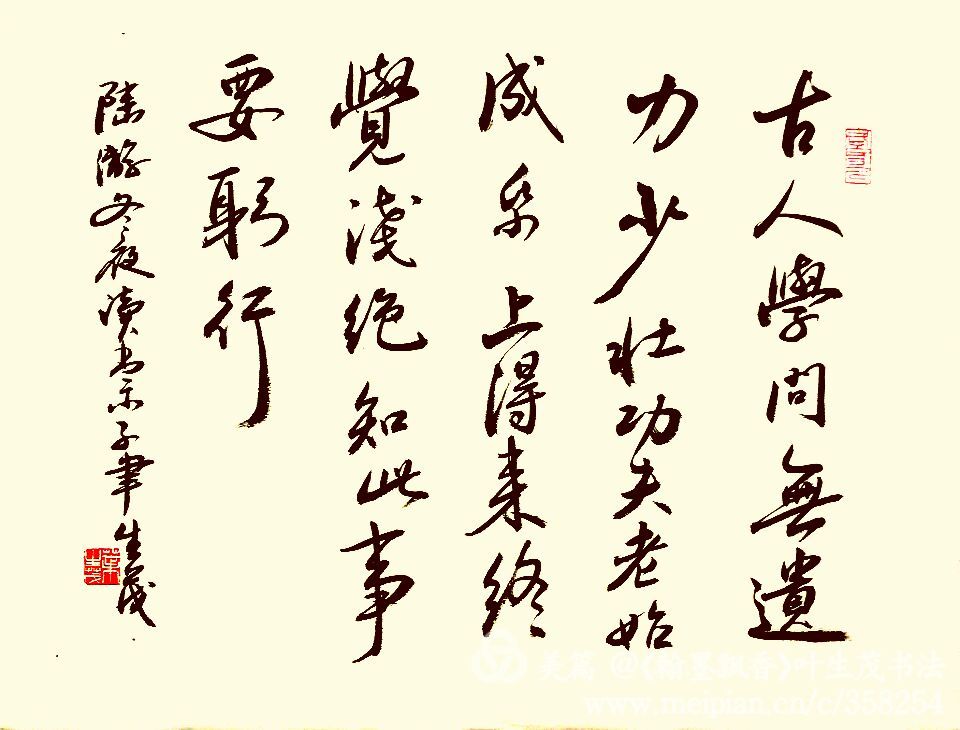 古人學問無遺
力少壯功夫老始
成帋上得来終
覺淺絶知此事
要躬行
陸游冬夜讀书示子聿 生茂
美篇 @《翰墨飘香》叶生茂书法
www.meipian.cn/c/358254